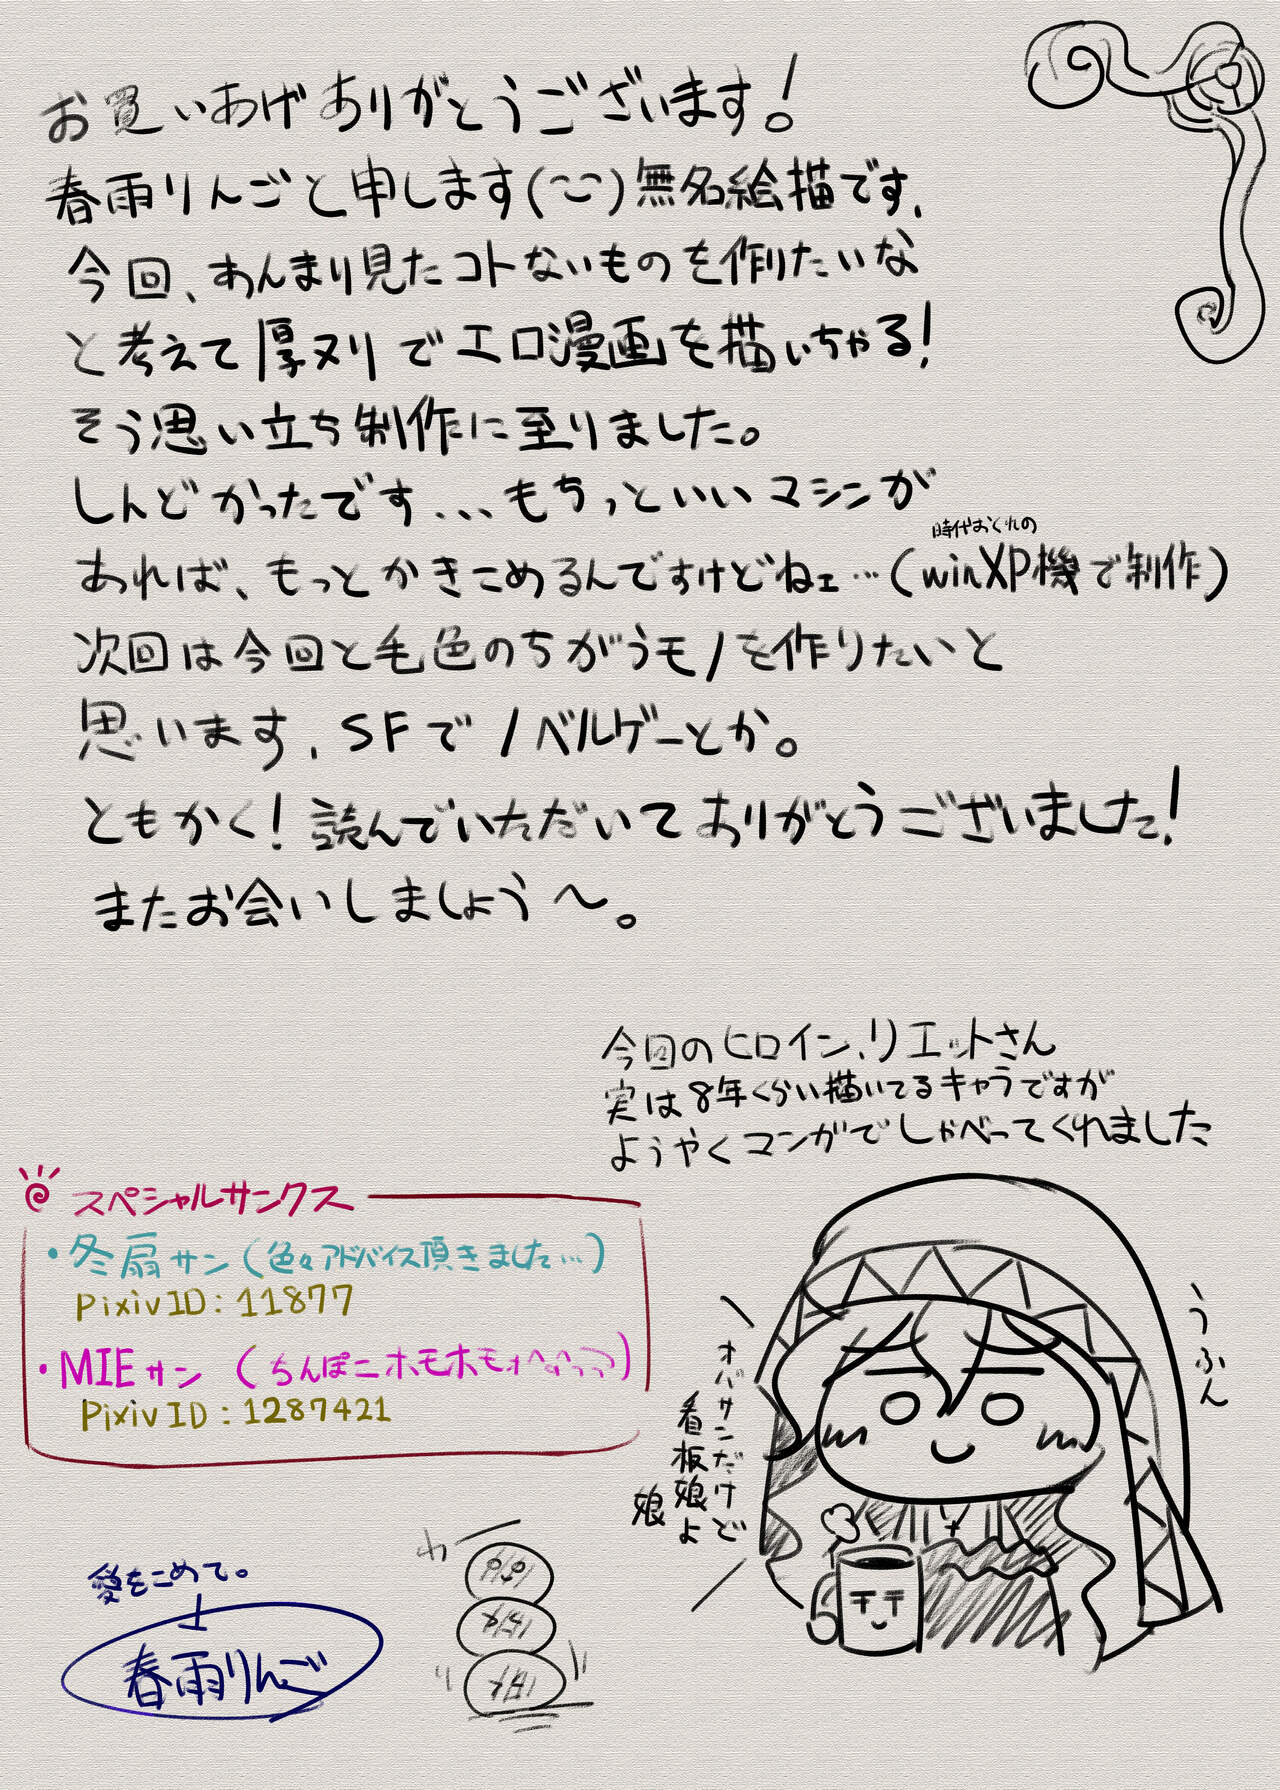 お買いあげありがとうございます！
春雨りんごと申します(^-^)無名絵描です、
今回、あんまり見たコトないものを作りたいな
と考えて厚ヌリでエロ漫画を描いちゃる！
そう思い立ち制作に至りました。
しんどかったです、、、もちっといいマシンが
あれば、もっとかきこめるんですけどねェ…(winXP機で制作)
時代おくれの
次回は今回と毛色のちがうモノを作りたいと
思います、SFでノベルゲーとか。
ともかく！読んでいただいてありがとうございました！
またお会いしましょう〜。
今回のヒロイン、リエットさん
実は8年くらい描いてるキャラですが
ようやくマンガでしゃべってくれました
スペシャルサンクス
・冬扇サン(色々アドバイス頂きました…)
pixivID：11877
・MIEサン(ちんぽこホモホモ
PixivID：1287421
うふん
オバサンだけど
看板娘よ
娘
愛をこめて。
春雨りんご